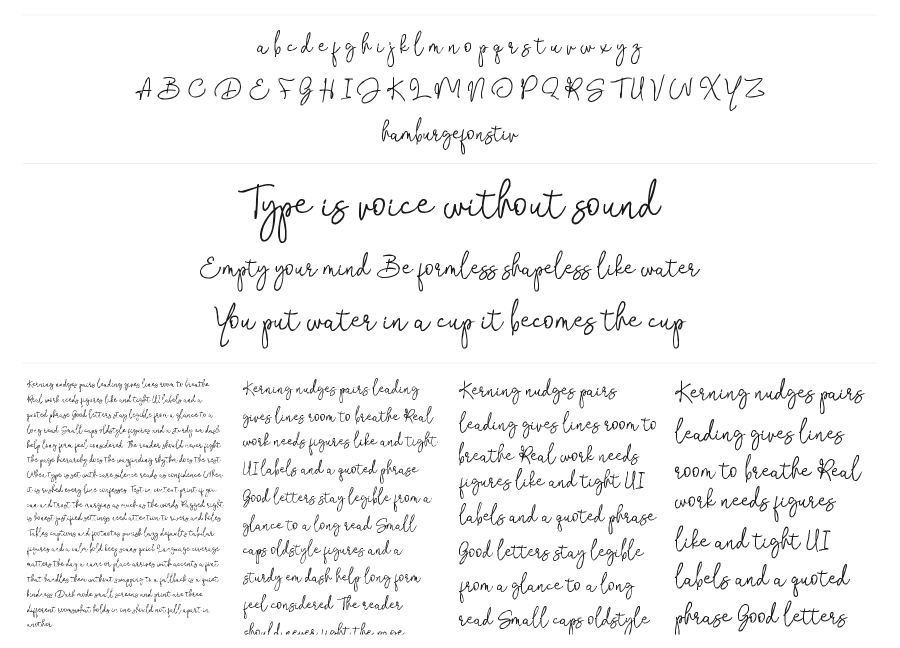 a b c d e f g h i j k l m n o p q r s t u v w x y z
A B C D E F G H I J K L M N O P Q R S T U V W X Y Z
hamburgefonstiv
Type is voice without sound
Empty your mind Be formless shapeless like water
You put water in a cup it becomes the cup
Kerning nudges pairs leading gives lines room to breathe
Real work needs figures like and tight UI labels and a
quoted phrase Good letters stay legible from a glance to a
long read Small caps oldstyle figures and a sturdy em dash
help long form feel considered The reader should never fight
the page hierarchy does the wayfinding rhythm does the rest
When type is set with care silence reads as confidence When
it is rushed every line confesses Test in context print if you
can and trust the margins as much as the words Ragged right
is honest justified settings need attention to rivers and holes
Tables captions and footnotes punish lazy defaults tabular
figures and a calm bold keep scans quiet Language coverage
matters the day a name or place arrives with accents a font
that handles them without swapping to a fallback is a quiet
kindness Dark mode small screens and print are three
different rooms what holds in one should not fall apart in
another
Kerning nudges pairs leading
gives lines room to breathe Real
work needs figures like and tight
UI labels and a quoted phrase
Good letters stay legible from a
glance to a long read Small
caps oldstyle figures and a
sturdy em dash help long form
feel considered The reader
Kerning nudges pairs
leading gives lines room to
breathe Real work needs
figures like and tight UI
labels and a quoted phrase
Good letters stay legible
from a glance to a long
read Small caps oldstyle
Kerning nudges pairs
leading gives lines
room to breathe Real
work needs figures
like and tight UI
labels and a quoted
phrase Good letters